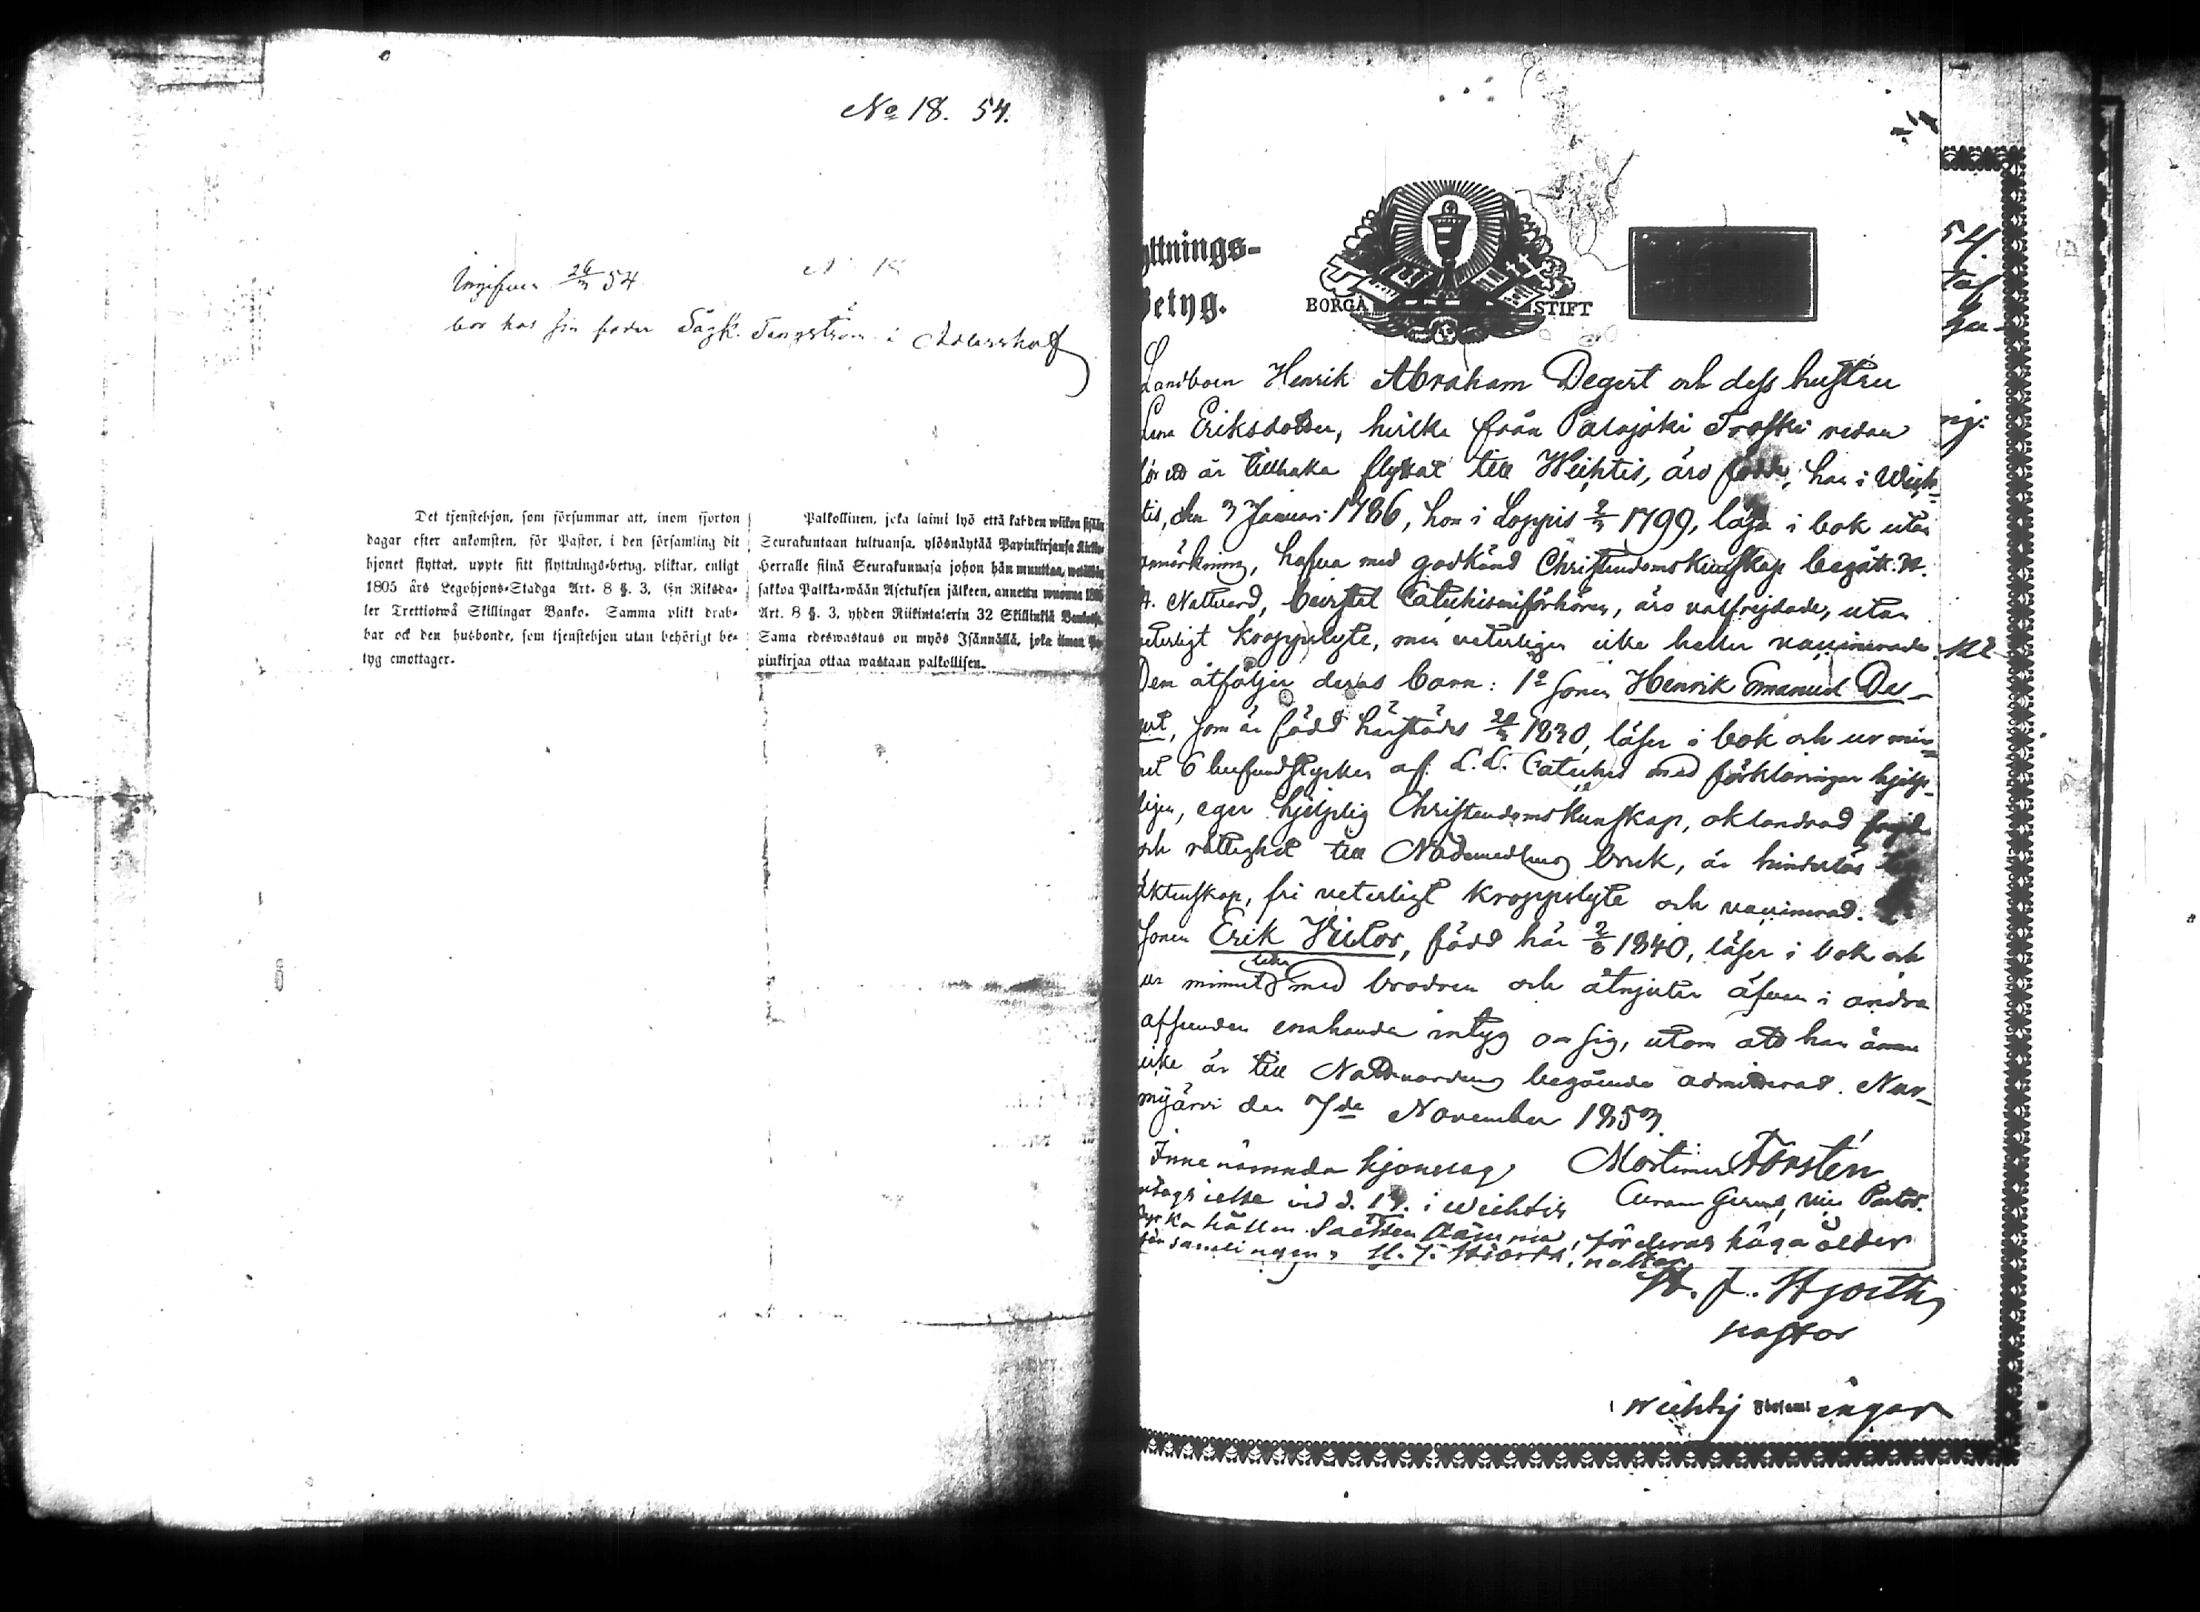 No 18. 54.
54
bor hos sin fader i
Det tjenstehjon, som försummar att, inom fjorton
dagar efter ankomsten, för Pastor, i den församling dit
hjonet flyttat, uppte sitt flyttnings-betyg, pliktar, enligt
1805 års Legohjons-Stadga Art. 8 §. 3, En Riksda-
ler Trettiotwå Skillingar Banko. Samma plikt drab-
bar ock den husbonde, som tjenstehjon utan behörigt be-
tyg emottager.
Palkollinen, joka laimi lyö että kahden wiikon sisään
Seurakuntaan tultuansa, ylösnäytää Papinkirjansa Kirkko-
Herralle siinä Seurakunnasa johon hän muuttaa, wetäkön
sakkoa Palkka-wään Asetuksen jälkeen, annettu wuonna 1805
Art. 8 §. 3, yhden Riikintalerin 32 Skillinkiä Bankossa.
Sama edeswastaus on myös Isännällä, joka ilman Pa-
pinkirjaa ottaa wastaan palkollisen.
yttnings-
Betyg.
BORGÅ STIFT
Landboen Henrik Abraham Degert och dess hustru
Lena Eriksdotter, hvilka från Palajoki redan
för ett år tillbaka flyttat till Wichtis, äro födde, han i Wich-
tis, den 3 Januari 1786, hon i Loppis 1799, läsa i bok utan
anmärkning, hafva med godkänd Christendomskunskap begått H.
H. Nattvard, bevistat Catechismiförhören, äro välfrejdade, utan
veterligt kroppslyte, men veterligen icke heller vaccinerade.
Dem åtföljer deras barn: 1o sonen Henrik Emanuel De-
gert, som är född härstädes 1830, läser i bok och ur min-
net 6 hufvudstycken af L. L. Cateches med förklaringen hjelp-
ligen, eger hjelplig Christendomskunskap, oklandrad frejd
och rättighet till Nådemedlens bruk, är hinderlös
äktenskap, fri veterligt kroppslyte och vaccinerad.
sonen Erik Victor, född här 1840, läser i bok och
ur minnet lika med brodren och åtnjuter äfven i andra
afseenden enahanda intyg om sig, utom att han ännu
icke är till Nattvardens begående admitterad. Nur-
mijärvi den 7de November 1853.
Mortimer Forstén
Curam Gerens, Vice Pastor.
Innenämnda hjonelag
antags icke vid d. 14. i Wichtis
för deras höga ålder
församlingen. H. J. Hjorth, pastor
H. J. Hjorth
pastor
i Wichtij Församlingar